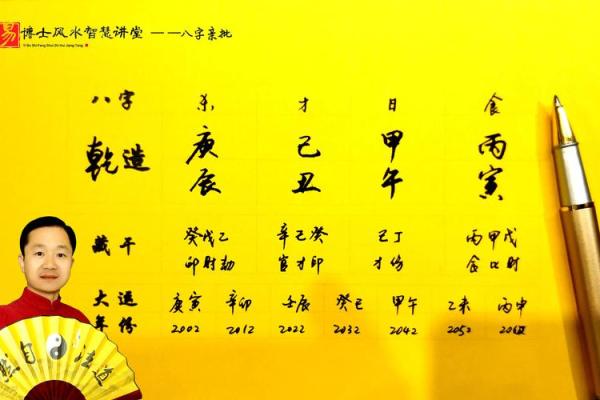 易 博士风水智慧讲堂 ——八字亲批
Yi Bo Shi Feng Shui Zhi Hui Jiang Tang
八字 杀 才 日 食
乾造 庚辰 己丑 甲午 丙寅
藏干 癸戊乙 辛己癸 己丁 丙甲戊
印财劫 官才印 才伤 食比财
大运 庚寅 辛卯 壬辰 癸巳 甲午 乙未 丙申
年份 2002 2012 2022 2032 2042 2052
自 法 道